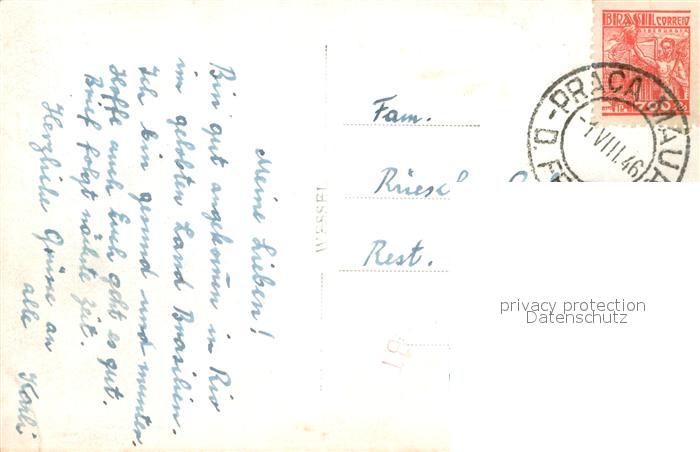 Meine Lieben!
Bin gut angekom̄en in Rio
im gelobten Land Brasilien.
Ich bin gesund und munter.
Hoffe auch Euch geht es gut.
Brief folgt nächste Zeit.
Herzliche Grüsse an
alle
WESSEL
Fam.
Rest.
BRASIL CORREIO
SIDERURGIA
PRAÇA MAUÁ
-1 VIII.46
D.F.
privacy protection
Datenschutz